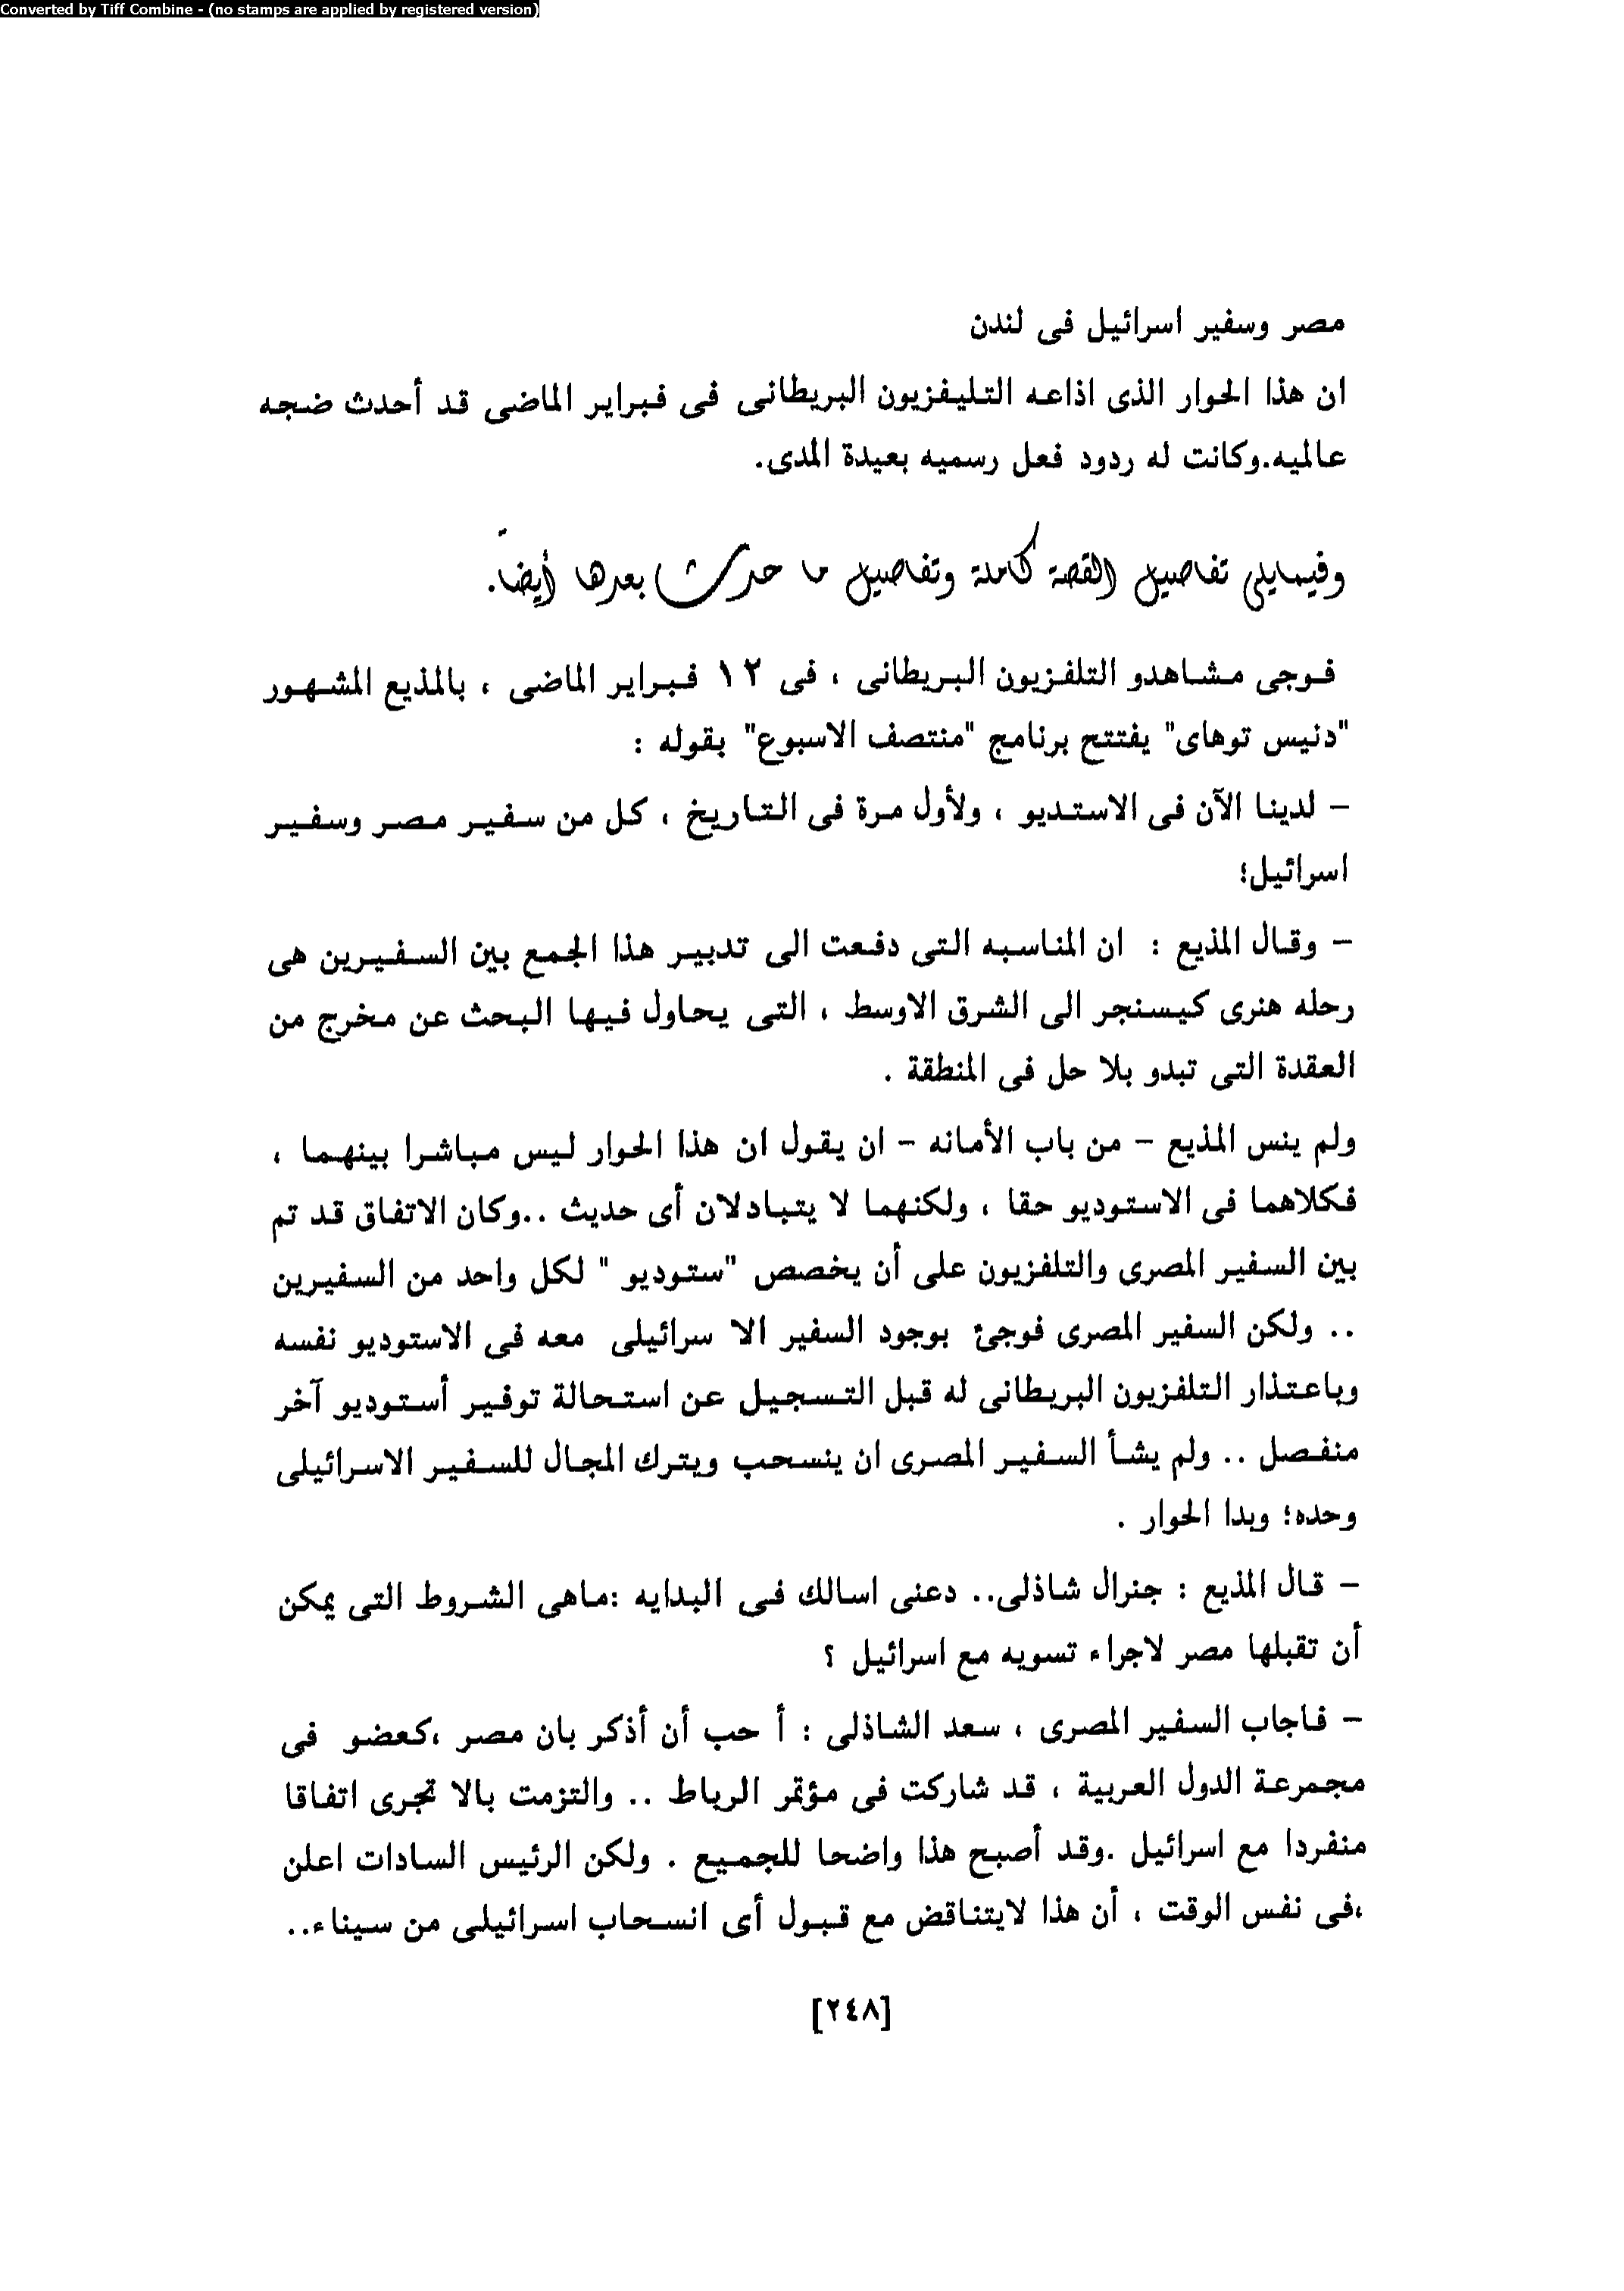 Converted by Tiff Combine - (no stamps are applied by registered version)
مصر وسفير اسرائيل فى لندن
ان هذا الحوار الذى اذاعه التليفزيون البريطانى فى فبراير الماضى قد أحدث ضجه
عالميه.وكانت له ردود فعل رسميه بعيدة المدى.
وفيمايلى تفاصيل القصة كاملة وتفاصيل ما حدث بعدها أيضاً.
فوجى مشاهدو التلفزيون البريطانى ، فى ١٢ فبراير الماضى ، بالمذيع المشهور
"دنيس توهاى" يفتتح برنامج "منتصف الاسبوع" بقوله :
– لدينا الآن فى الاستديو ، ولأول مرة فى التاريخ ، كل من سفير مصر وسفير
اسرائيل؛
– وقال المذيع : ان المناسبه التى دفعت الى تدبير هذا الجمع بين السفيرين هى
رحله هنرى كيسنجر الى الشرق الاوسط ، التى يحاول فيها البحث عن مخرج من
العقدة التى تبدو بلا حل فى المنطقة .
ولم ينس المذيع – من باب الأمانه – ان يقول ان هذا الحوار ليس مباشرا بينهما ،
فكلاهما فى الاستوديو حقا ، ولكنهما لا يتبادلان أى حديث ..وكان الاتفاق قد تم
بين السفير المصرى والتلفزيون على أن يخصص "ستوديو " لكل واحد من السفيرين
.. ولكن السفير المصرى فوجئ بوجود السفير الا سرائيلى معه فى الاستوديو نفسه
وباعتذار التلفزيون البريطانى له قبل التسجيل عن استحالة توفير أستوديو آخر
منفصل .. ولم يشأ السفير المصرى ان ينسحب ويترك المجال للسفير الاسرائيلى
وحده؛ وبدا الحوار .
– قال المذيع : جنرال شاذلى.. دعنى اسالك فى البدايه :ماهى الشروط التى يمكن
أن تقبلها مصر لاجراء تسويه مع اسرائيل ؟
– فاجاب السفير المصرى ، سعد الشاذلى : أ حب أن أذكر بان مصر ،كعضو فى
مجمرعة الدول العربية ، قد شاركت فى مؤتمر الرباط .. والتزمت بالا تجرى اتفاقا
منفردا مع اسرائيل .وقد أصبح هذا واضحا للجميع . ولكن الرئيس السادات اعلن
،فى نفس الوقت ، أن هذا لايتناقض مع قبول أى انسحاب اسرائيلى من سيناء..
[٢٤٨]